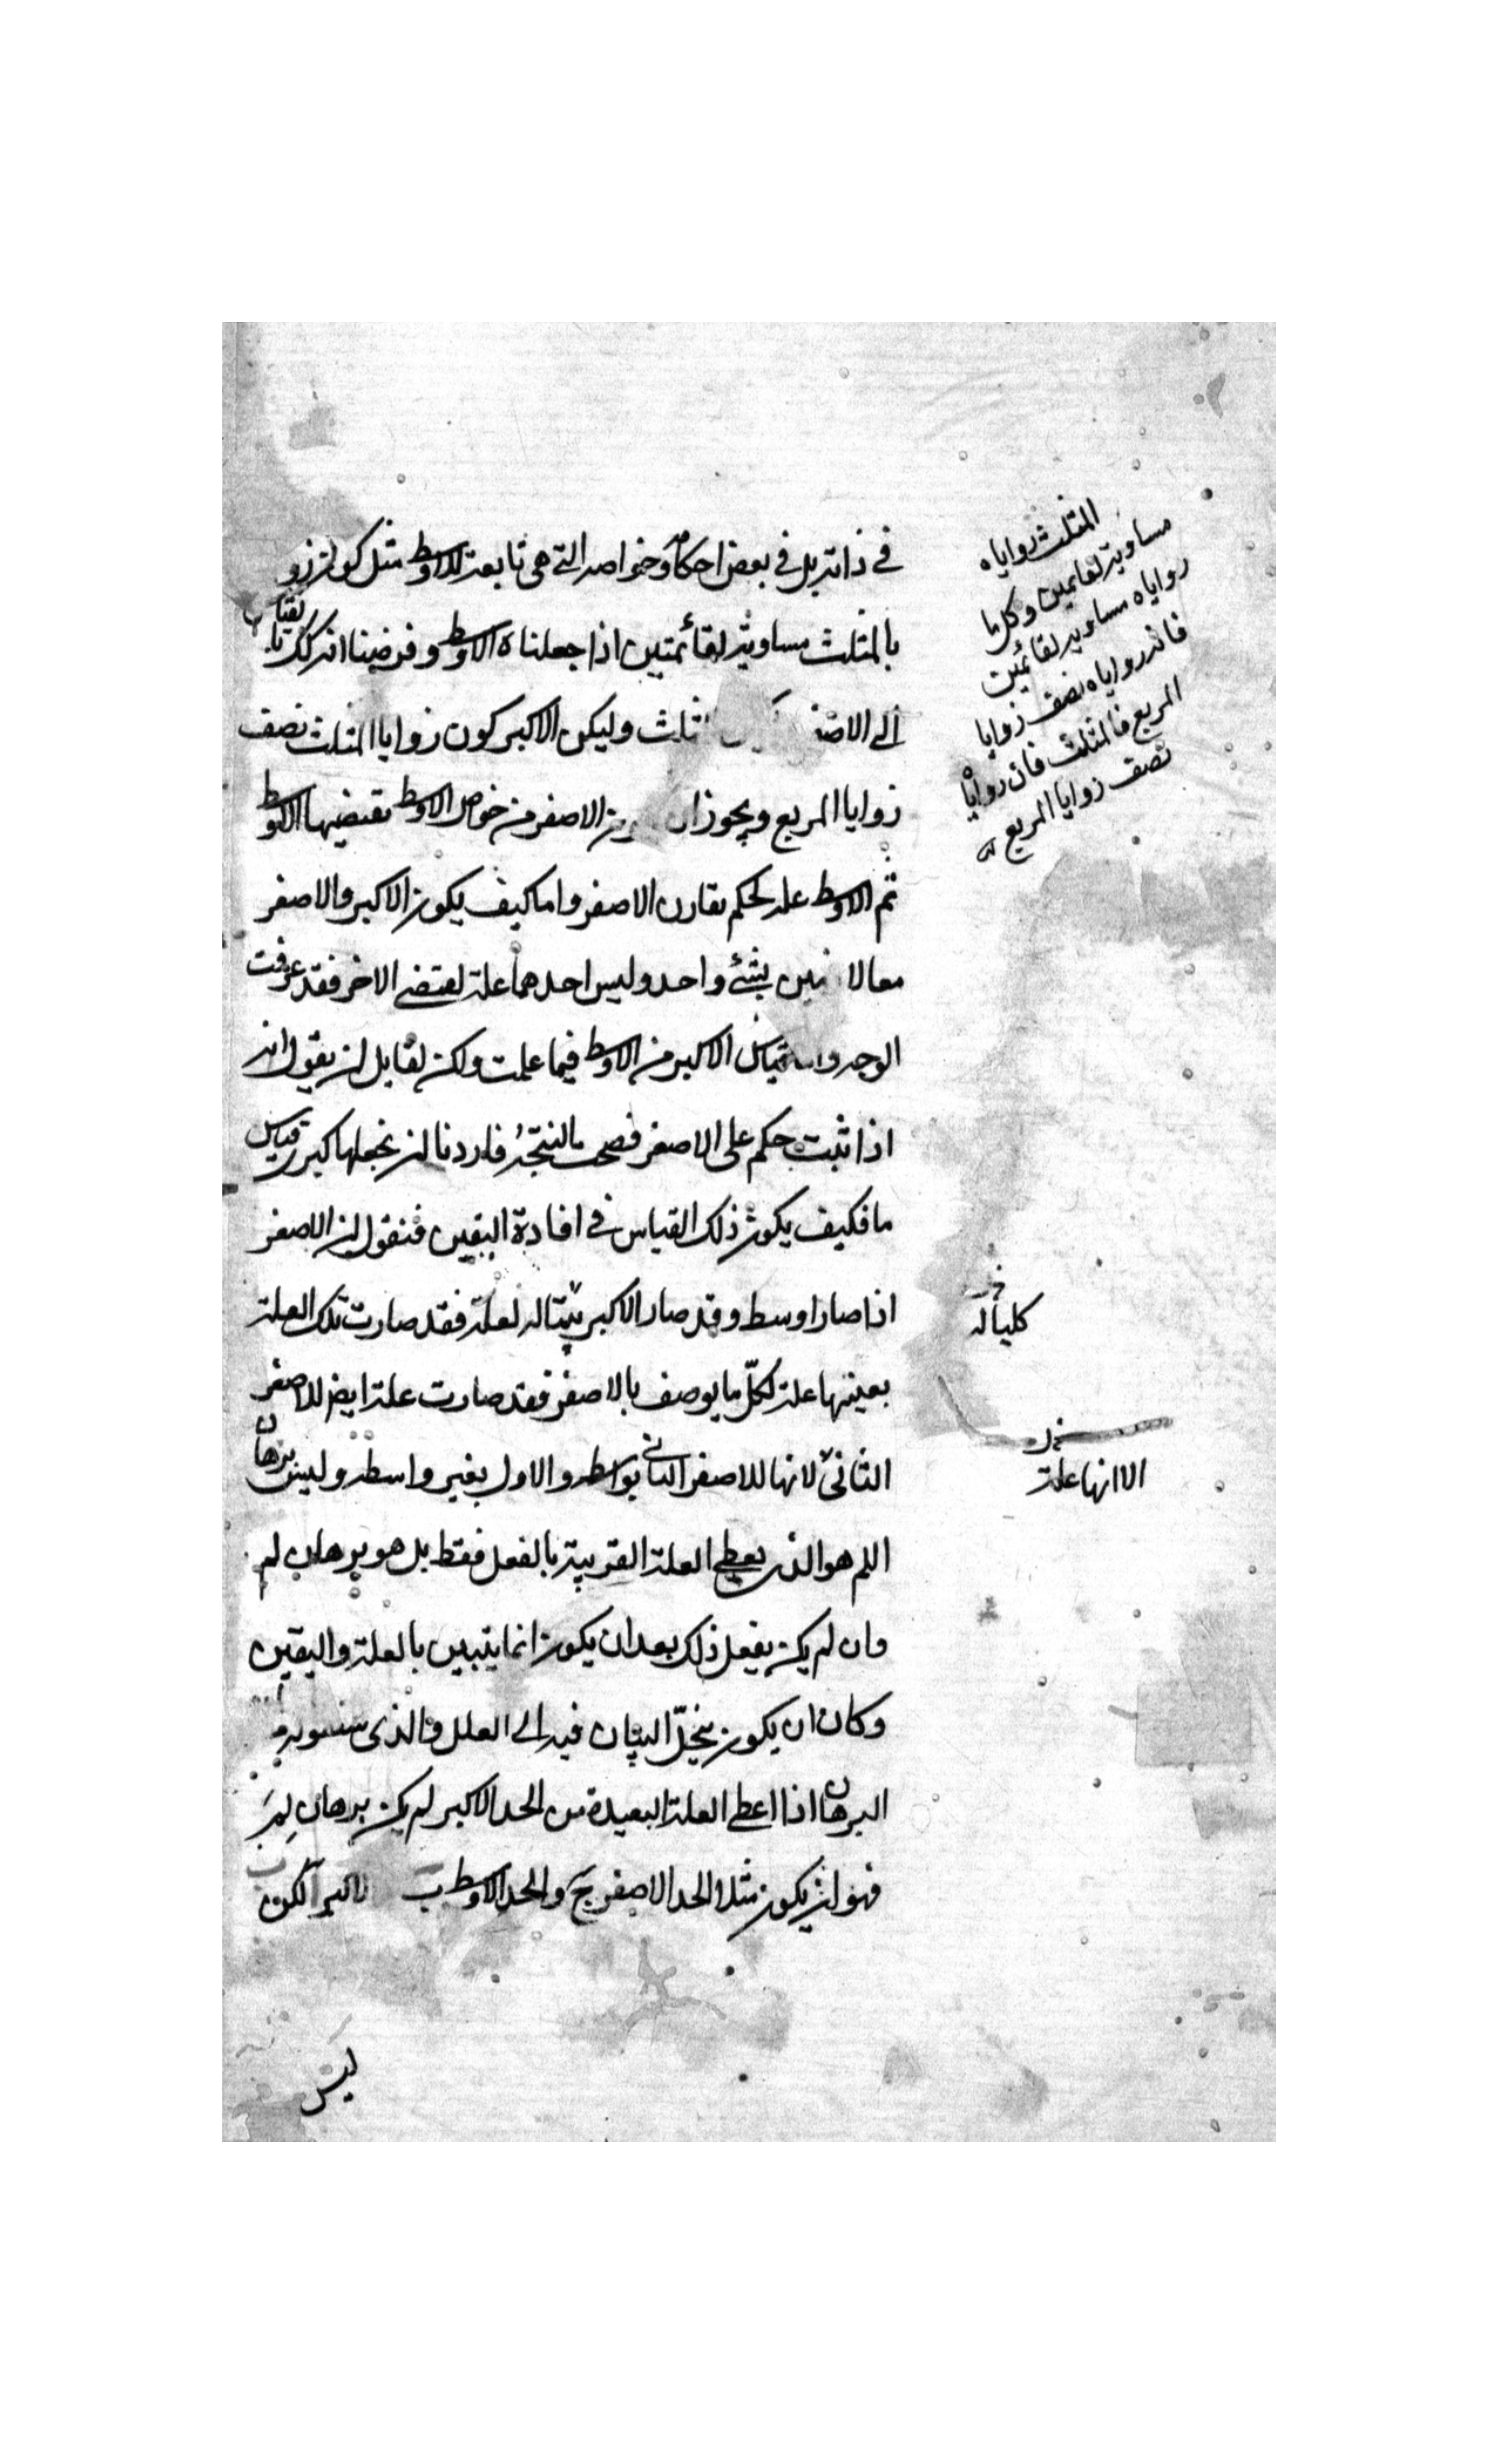 في ذاته بل في بعض احكامه وخواصه التي هي تابعة للاوسط مثل كون زو
بالمثلث مساوية لقائمتين اذا جعلناه الاوسط وفرضنا انه كك
الى الاصغر المثلث وليكن الاكبر كون زوايا المثلث نصف
زوايا المربع ويجوز ان الاصغر من خواص الاوسط يقتضيها الاوسط
ثم الاوسط علة لحكم يقارن الاصغر واما كيف يكون الاكبر والاصغر
معا لا بشئ واحد وليس احدهما علة لمقتضى الاخر فقد عرفت
الوجه قياس الاكبر من الاوسط فيما علمت ولكن لقايل ان يقول انه
اذا ثبت حكم على الاصغر فصحت النتيجة فاردنا ان نجعلها كبرى قياس
ما فكيف يكون ذلك القياس في افادة اليقين فنقول ان الاصغر
اذا صار اوسط وقد صار الاكبر بينا له لعلة فقد صارت تلك العلة
بعينها علة لكل ما يوصف بالاصغر فقد صارت علة ايض للاصغر
الثاني لانها للاصغر الثاني بواسطه والاول بغير واسطه وليس برهان
اللم هو الذى يعطي العلة القريبة بالفعل فقط بل هو برهان لم
وان لم يكن يفعل ذلك بعد ان يكون انما يتبين بالعلة واليقين
وكان ان يكون ينحل البيان فيه الى العلل والذى
البرهان اذا اعطى العلة البعيدة من الحد الاكبر لم يكن برهان لم
فهو ان يكون مثلا الحد الاصغر ج والحد الاوسط ب لكن
ليس
المثلث زواياه
مساوية لقائمين وكل ما
زواياه مساوية لقائمين
فانه زواياه نصف زوايا
المربع فالمثلث فان زواياه
نصف زوايا المربع
كلياله
الا انها علة